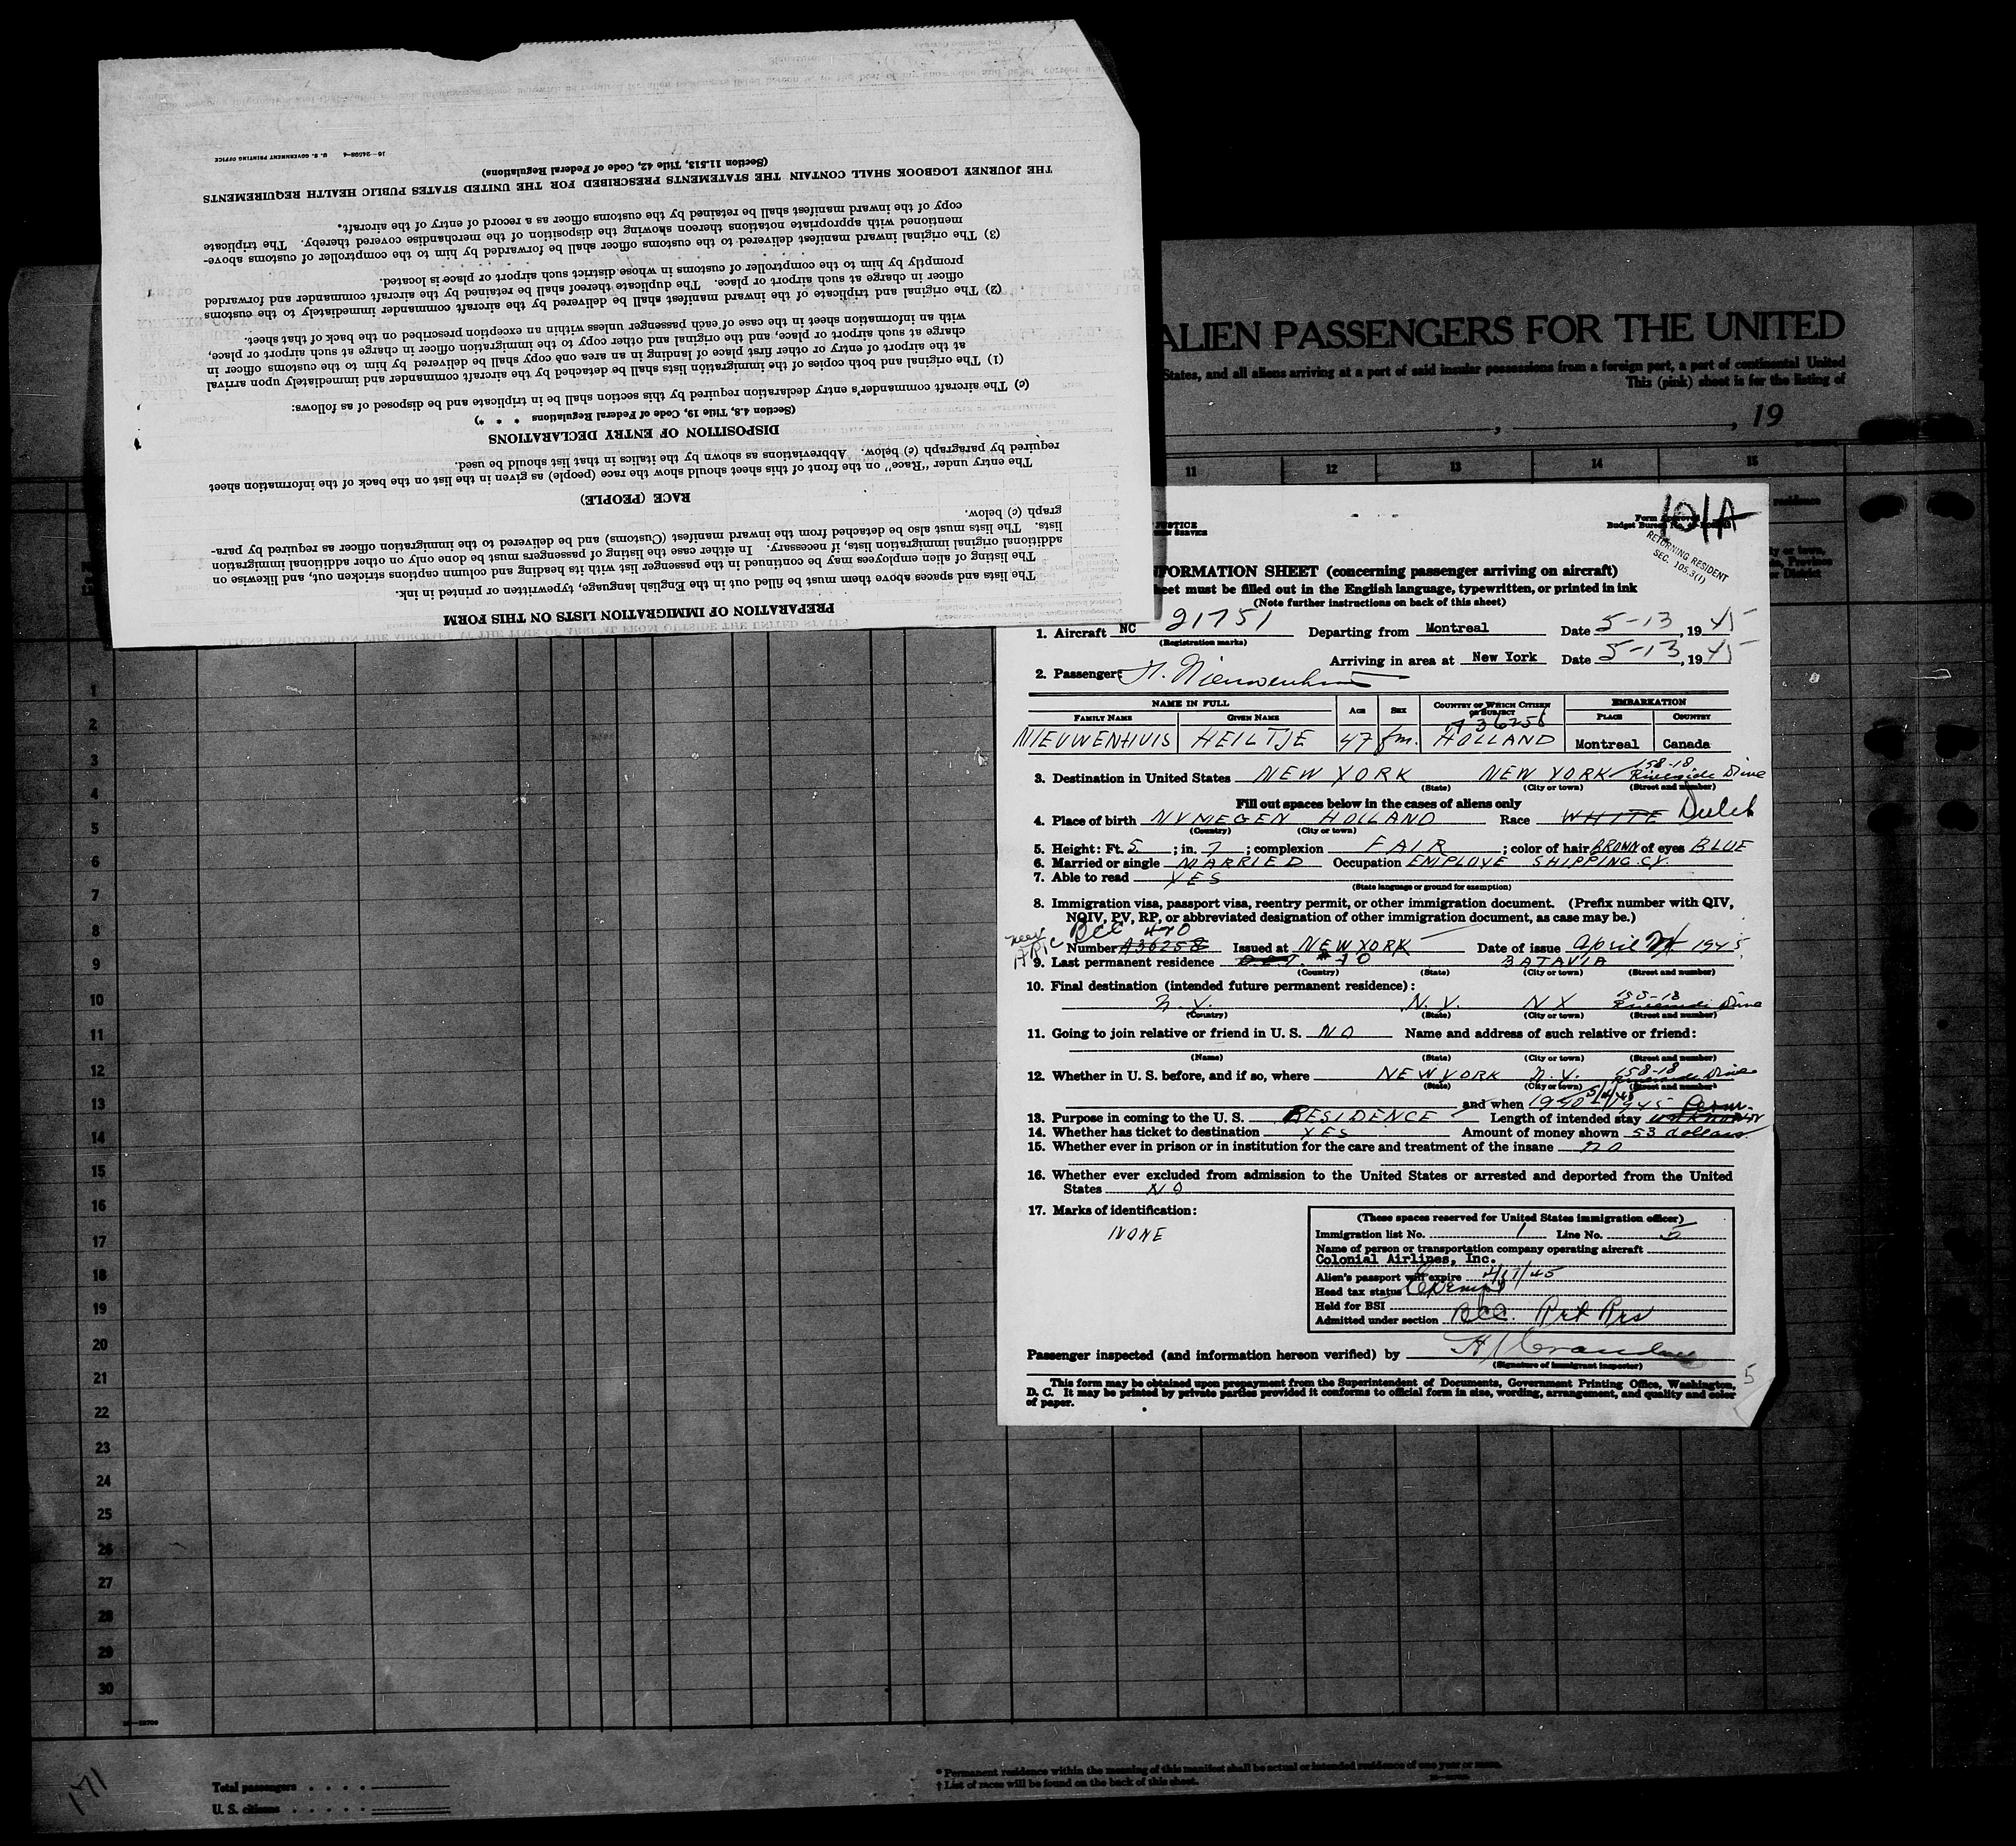 PREPARATION OF IMMIGRATION LISTS ON THIS FORM
The lists and spaces above them must be filled out in the English language, typewritten or printed in ink.
The listing of alien employees may be continued in the passenger list with its heading and column captions stricken out, and likewise on
additional original immigration lists, if necessary. In either case the listing of passengers must be done only on other additional immigration
lists. The lists must also be detached from the inward manifest (Customs) and be delivered to the immigration officer as required by para-
graph (c) below.
RACE (PEOPLE)
The entry under "Race" on the front of this sheet should show the race (people) as given in the list on the back of the information sheet
required by paragraph (c) below. Abbreviations as shown by the italics in that list should be used.
DISPOSITION OF ENTRY DECLARATIONS
(Section 4.8, Title 19, Code of Federal Regulations * * *)
(c) The aircraft commander's entry declaration required by this section shall be in triplicate and be disposed of as follows:
(1) The original and both copies of the immigration lists shall be detached by the aircraft commander and immediately upon arrival
at the airport of entry or other first place of landing in an area one copy shall be delivered by him to the customs officer in
charge at such airport or place, and the original and other copy to the immigration officer in charge at such airport or place,
with an information sheet in the case of each passenger unless within an exception prescribed on the back of that sheet.
(2) The original and triplicate of the inward manifest shall be delivered by the aircraft commander immediately to the customs
officer in charge at such airport or place. The duplicate thereof shall be retained by the aircraft commander and forwarded
promptly by him to the comptroller of customs in whose district such airport or place is located.
(3) The original inward manifest delivered to the customs officer shall be forwarded by him to the comptroller of customs above-
mentioned with appropriate notations thereon showing the disposition of the merchandise covered thereby. The triplicate
copy of the inward manifest shall be retained by the customs officer as a record of entry of the aircraft.
THE JOURNEY LOGBOOK SHALL CONTAIN THE STATEMENTS PRESCRIBED FOR THE UNITED STATES PUBLIC HEALTH REQUIREMENTS
(Section 11.513, Title 42, Code of Federal Regulations)
16—24598-4 U. S. GOVERNMENT PRINTING OFFICE
ALIEN PASSENGERS FOR THE UNITED
States, and all aliens arriving at a port of said insular possessions from a foreign port, a port of continental United
This (pink) sheet is for the listing of
, 19
11 12 13 14 15
JUSTICE
Form Approved
101A
RETURNING RESIDENT
SEC. 105.3(1)
FORMATION SHEET (concerning passenger arriving on aircraft)
heet must be filled out in the English language, typewritten, or printed in ink
(Note further instructions on back of this sheet)
1. Aircraft NC 21751 Departing from Montreal Date 5-13, 1945
(Registration marks)
Arriving in area at New York Date 5-13, 1945
2. Passenger: H. Nieuwenhuis
NAME IN FULL AGE SEX COUNTRY OF WHICH CITIZEN OR SUBJECT EMBARKATION
FAMILY NAME GIVEN NAME PLACE COUNTRY
A36256
NIEUWENHUIS HEILTJE 47 fm. HOLLAND Montreal Canada
3. Destination in United States NEW YORK NEW YORK 158-18 Riverside Drive
(State) (City or town) (Street and number)
Fill out spaces below in the cases of aliens only
4. Place of birth NYMEGEN HOLLAND Race WHITE Dutch
(Country) (City or town)
5. Height: Ft. 5 ; in. 7 ; complexion FAIR ; color of hair BROWN of eyes BLUE
6. Married or single MARRIED Occupation EMPLOYE SHIPPING CY.
7. Able to read YES
(State language or ground for exemption)
8. Immigration visa, passport visa, reentry permit, or other immigration document. (Prefix number with QIV,
NQIV, PV, RP, or abbreviated designation of other immigration document, as case may be.)
BCC 470
Number A36258 Issued at NEW YORK Date of issue April 1945
9. Last permanent residence BATAVIA
(Country) (State) (City or town) (Street and number)
10. Final destination (intended future permanent residence):
N.Y. N.Y. NY 158-18 Riverside Drive
(Country) (State) (City or town) (Street and number)
11. Going to join relative or friend in U. S. NO Name and address of such relative or friend:
(Name) (State) (City or town) (Street and number)
12. Whether in U. S. before, and if so, where NEW YORK N.Y. 158-18 Riverside Drive
(State) (City or town) (Street and number)
and when 1940 1945
13. Purpose in coming to the U. S. RESIDENCE Length of intended stay Perm.
14. Whether has ticket to destination YES Amount of money shown 53 dollars
15. Whether ever in prison or in institution for the care and treatment of the insane NO
16. Whether ever excluded from admission to the United States or arrested and deported from the United
States NO
17. Marks of identification:
NONE
(These spaces reserved for United States immigration officer)
Immigration list No. 1 Line No. 5
Name of person or transportation company operating aircraft
Colonial Airlines, Inc.
Alien's passport will expire
Head tax status Exempt
Held for BSI
Admitted under section BCC. Ret Res
Passenger inspected (and information hereon verified) by
(Signature of immigrant inspector)
This form may be obtained upon prepayment from the Superintendent of Documents, Government Printing Office, Washington,
D. C. It may be printed by private parties provided it conforms to official form in size, wording, arrangement, and quality and color
of paper.
5
1
2
3
4
5
6
7
8
9
10
11
12
13
14
15
16
17
18
19
20
21
22
23
24
25
26
27
28
29
30
171
Total passengers
U. S. citizens
* Permanent residence within the meaning of this manifest shall be actual or intended residence of one year or more.
† List of races will be found on the back of this sheet.